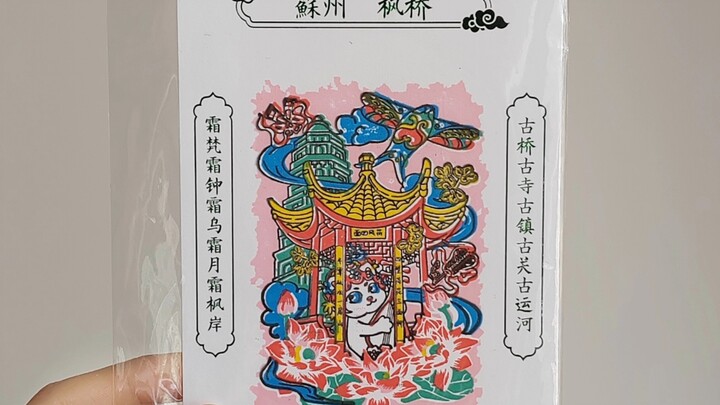 蘇州 枫桥
霜梵霜钟霜乌霜月霜枫岸
古桥古寺古镇古关古运河